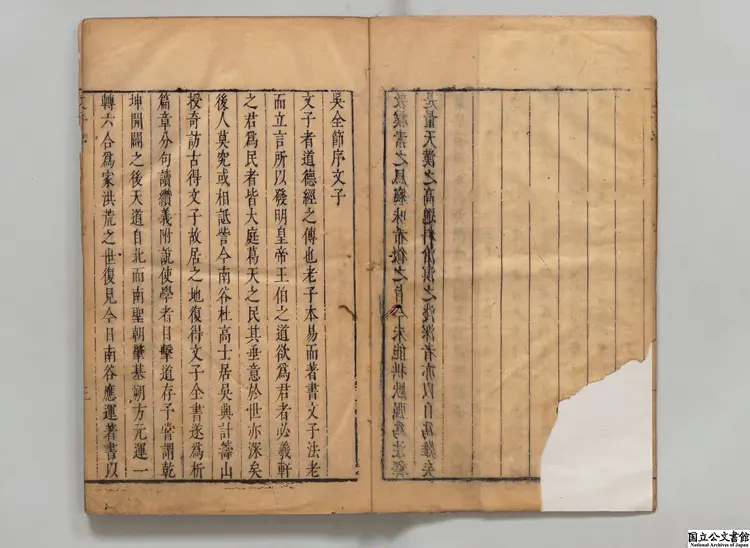 吳全節序文子
文子者道德經之傳也老子本易而著書文子法老
而立言所以發明皇帝王伯之道欲爲君者必羲軒
之君爲民者皆大庭葛天之民其垂意於世亦深矣
後人莫究或相詆訾今南谷杜高士居吳興計籌山
授奇訪古得文子故居之地復得文子全書遂爲析
篇章分句讀纘義附說使學者目擊道存予嘗謂乾
坤開闢之後天道自北而南聖朝肇基朔方元運一
轉六合爲家洪荒之世復見今日南谷應運著書以
国立公文書館
National Archives of Japan